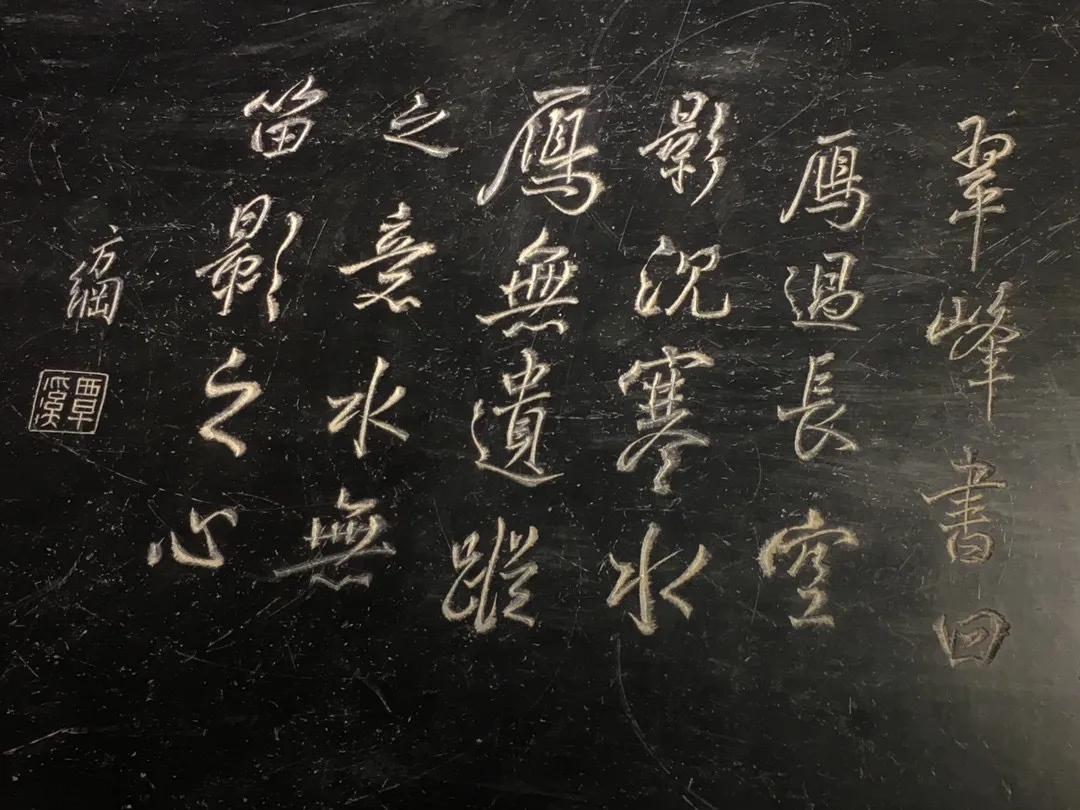 翠峰書曰
鴈過長空
影沉寒水
鴈無遺蹤
之意水無
留影之心
方綱
覃溪